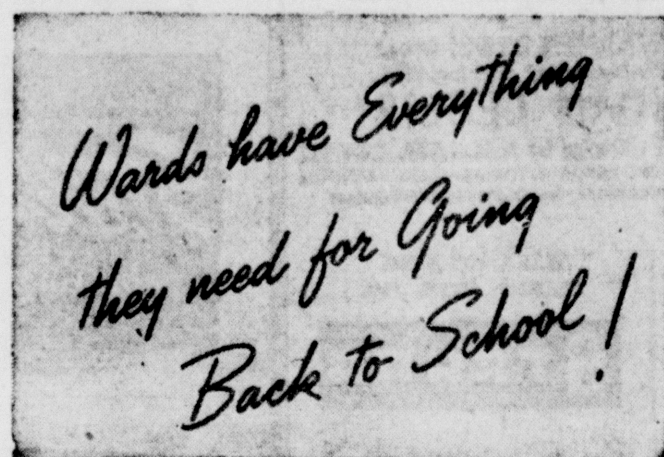 Wards have Everything
they need for Going
Back to School!